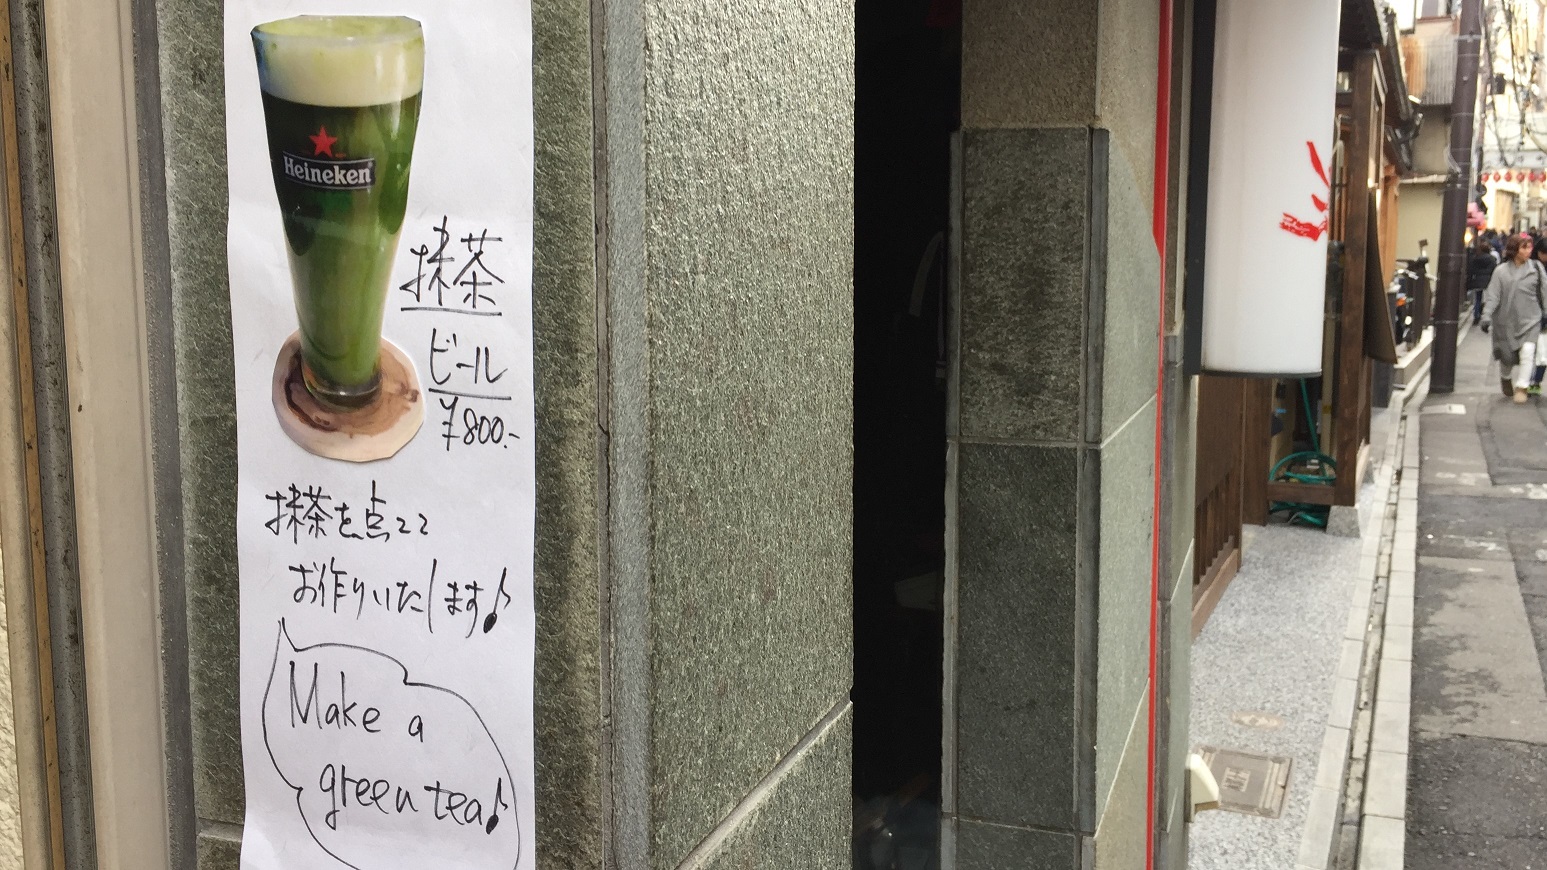 Heineken
抹茶
ビール
¥800.-
抹茶を点てて
お作りいたします♪
Make a
green tea♪